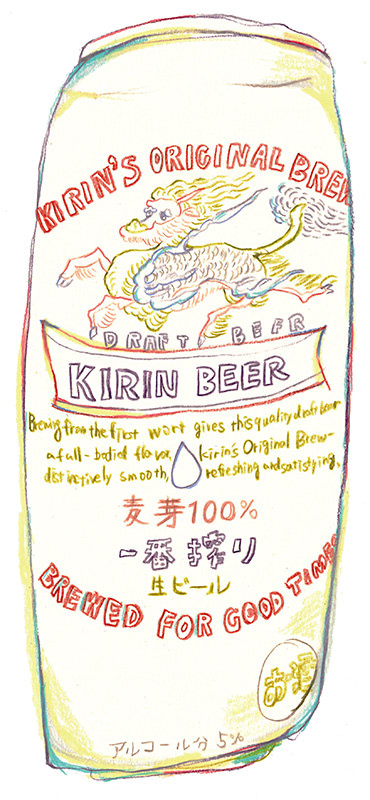 KIRIN'S ORIGINAL BREW
DRAFT BEER
KIRIN BEER
Brewing from the first wort gives this quality draft beer
a full-bodied flavor, Kirin's Original Brew-
distinctively smooth, refreshing and satisfying.
麦芽100%
一番搾り
生ビール
BREWED FOR GOOD TIMES
お酒
アルコール分 5%